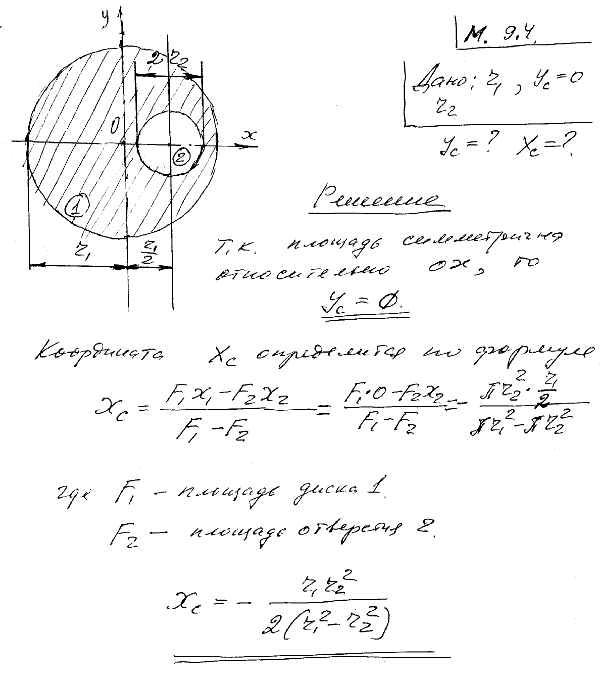 y
2 r₂
М. 9.4.
Дано: r₁, yc=0
r₂
0
x
②
yc=? xc=?
①
Решение
r₁ r₁/2
Т.к. площадь симметрична
относительно ox, то
yc = 0.
Координата xc определится по формуле
xc = (F₁x₁ − F₂x₂)/(F₁ − F₂) = (F₁·0 − F₂x₂)/(F₁ − F₂) = − (πr₂²·r₁/2)/(πr₁² − πr₂²)
где F₁ — площадь диска 1.
F₂ — площадь отверстия 2.
xc = − r₁r₂²/(2(r₁² − r₂²))